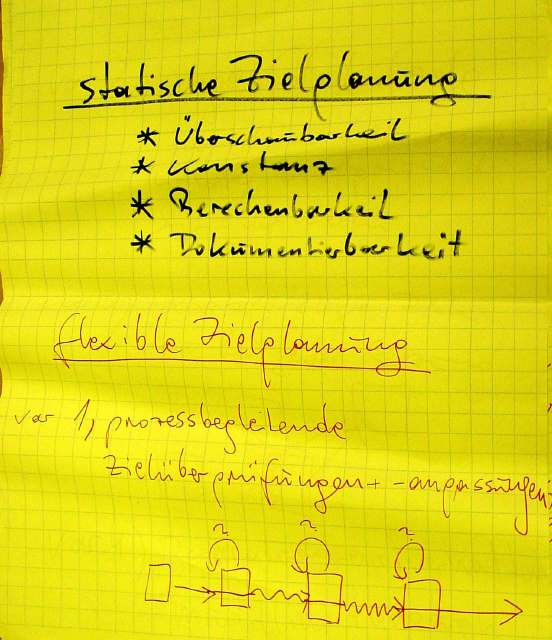 statische Zielplanung
* Überschaubarkeit
* Konstanz
* Berechenbarkeit
* Dokumentierbarkeit
flexible Zielplanung
var 1, prozessbegleitende
Zielüberprüfungen + -anpassungen
? ? ?